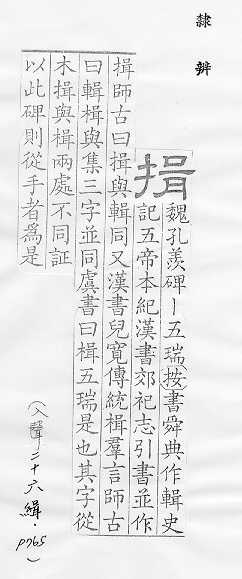 隸辨
揖
魏孔羨碑丨五瑞(按)書舜典作輯史
記五帝本紀漢書郊祀志引書並作
揖師古曰揖與輯同又漢書兒寬傳統楫羣言師古
曰輯楫與集三字並同虞書曰楫五瑞是也其字從
木揖與楫兩處不同証
以此碑則從手者爲是
(入聲二十六緝.p765)